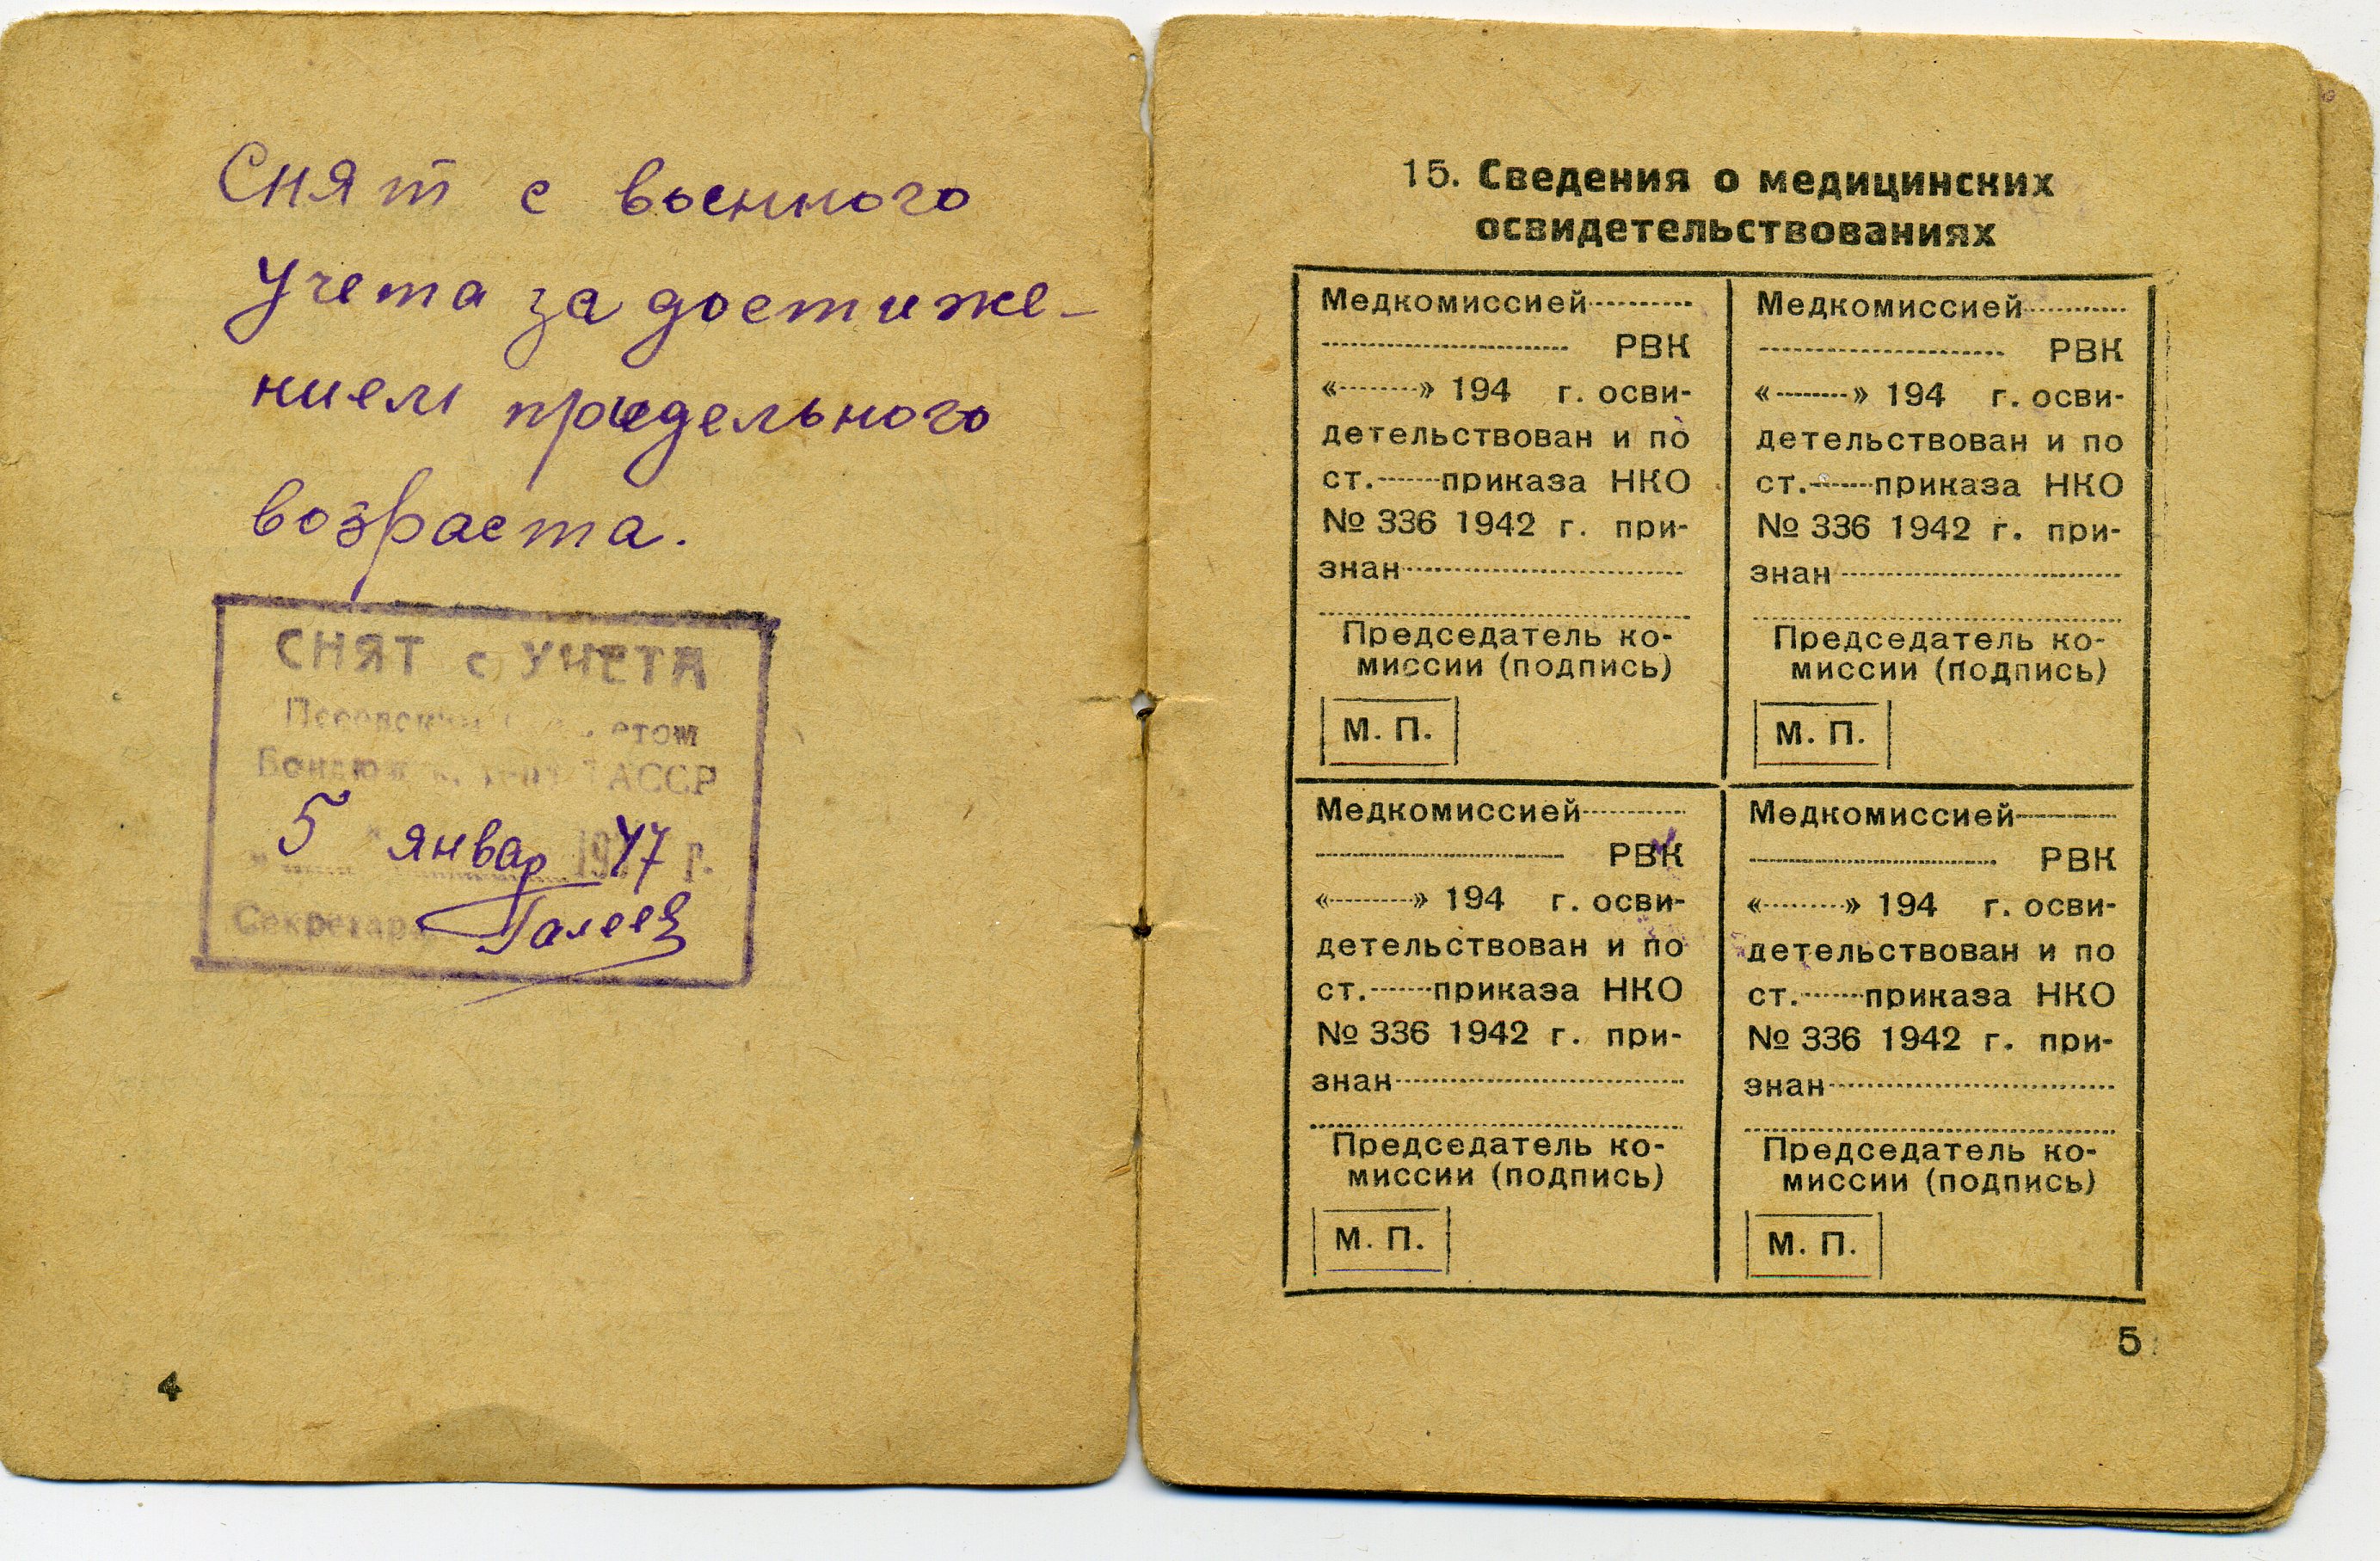 Снят с военного
учета за достиже-
нием предельного
возраста.
СНЯТ с УЧЕТА
ТАССР
5 январ 1947 г.
Секретарь Галеев
4
15. Сведения о медицинских
освидетельствованиях
Медкомиссией
РВК
« » 194 г. осви-
детельствован и по
ст. приказа НКО
№ 336 1942 г. при-
знан
Председатель ко-
миссии (подпись)
М. П.
Медкомиссией
РВК
« » 194 г. осви-
детельствован и по
ст. приказа НКО
№ 336 1942 г. при-
знан
Председатель ко-
миссии (подпись)
М. П.
Медкомиссией
РВК
« » 194 г. осви-
детельствован и по
ст. приказа НКО
№ 336 1942 г. при-
знан
Председатель ко-
миссии (подпись)
М. П.
Медкомиссией
РВК
« » 194 г. осви-
детельствован и по
ст. приказа НКО
№ 336 1942 г. при-
знан
Председатель ко-
миссии (подпись)
М. П.
5